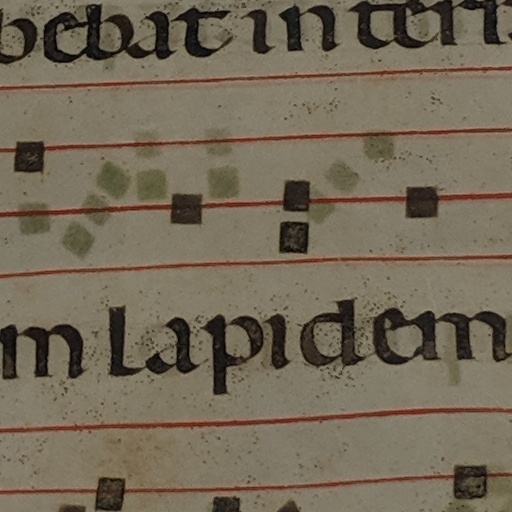 bebat in terr
m lapidem